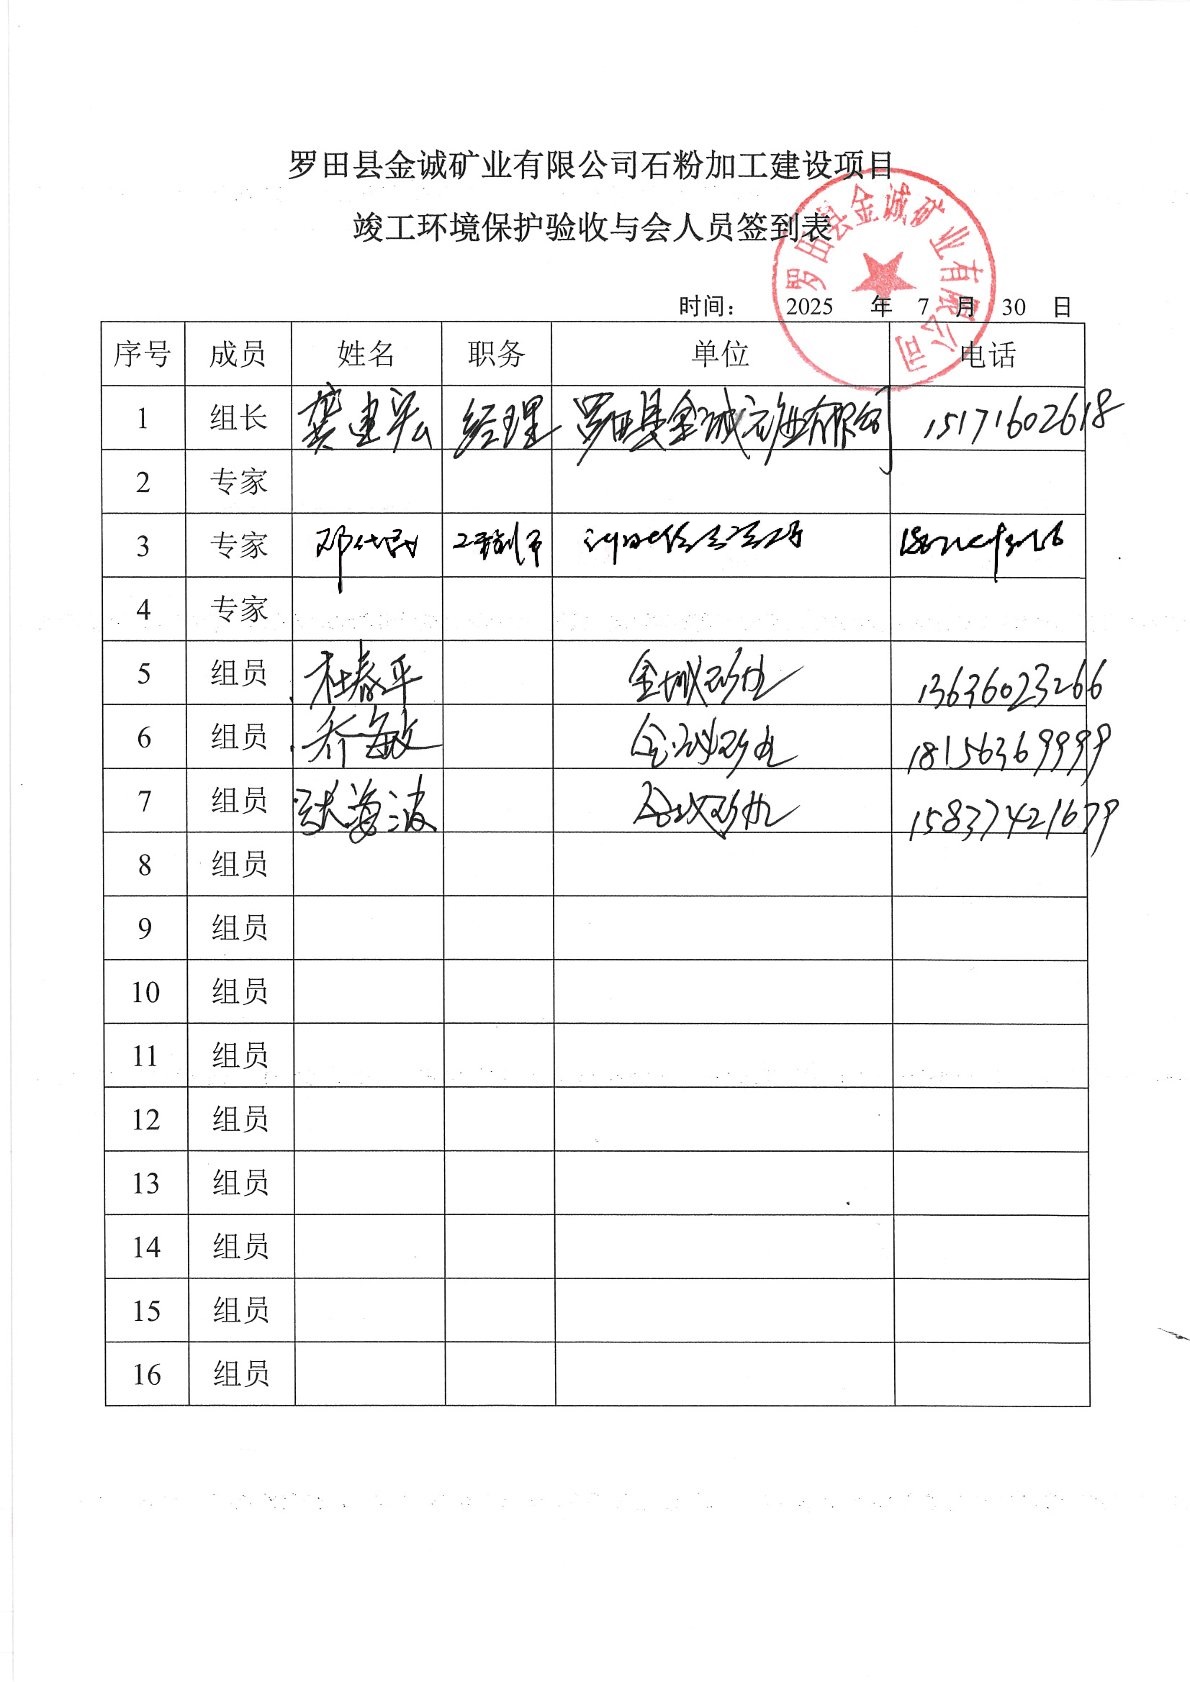 罗田县金诚矿业有限公司石粉加工建设项目
竣工环境保护验收与会人员签到表
罗田县金诚矿业有限公司
时间： 2025 年 7 月 30 日
序号 成员 姓名 职务 单位 电话
1 组长 龚建宏 经理 罗田县金诚矿业有限公司 15171602618
2 专家
3 专家 邓 工程师
4 专家
5 组员 杜春平 金诚矿业 13636023266
6 组员 乔敏 金诚矿业 18156369999
7 组员 张海波 金诚矿业 15837421679
8 组员
9 组员
10 组员
11 组员
12 组员
13 组员
14 组员
15 组员
16 组员